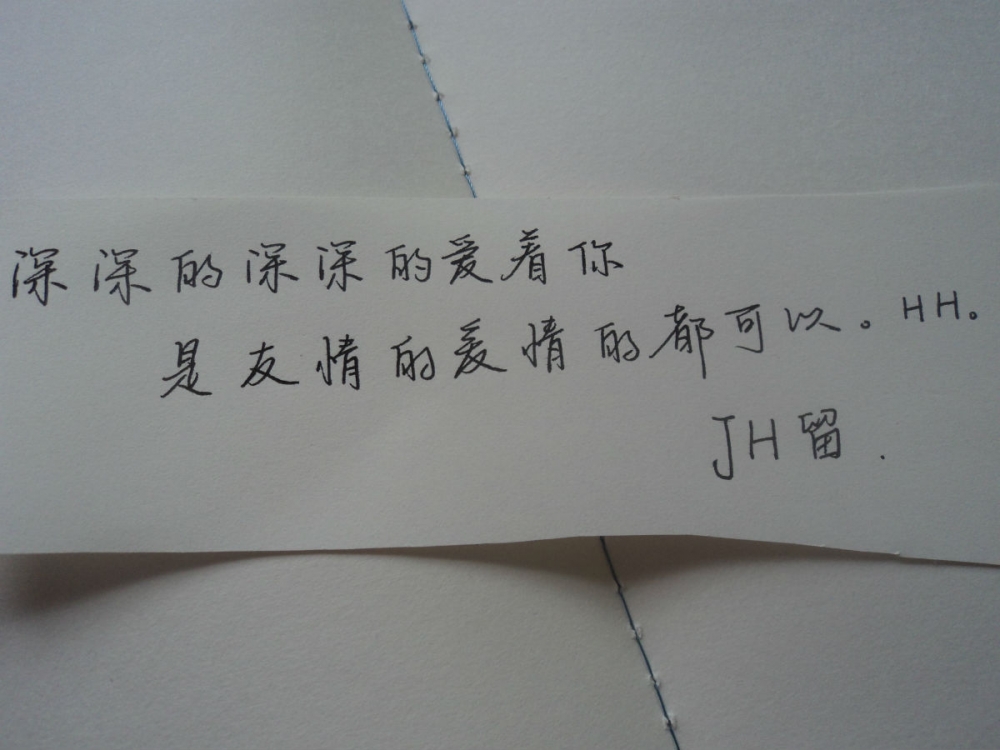 深深的深深的爱着你
是友情的爱情的都可以。HH。
JH留.